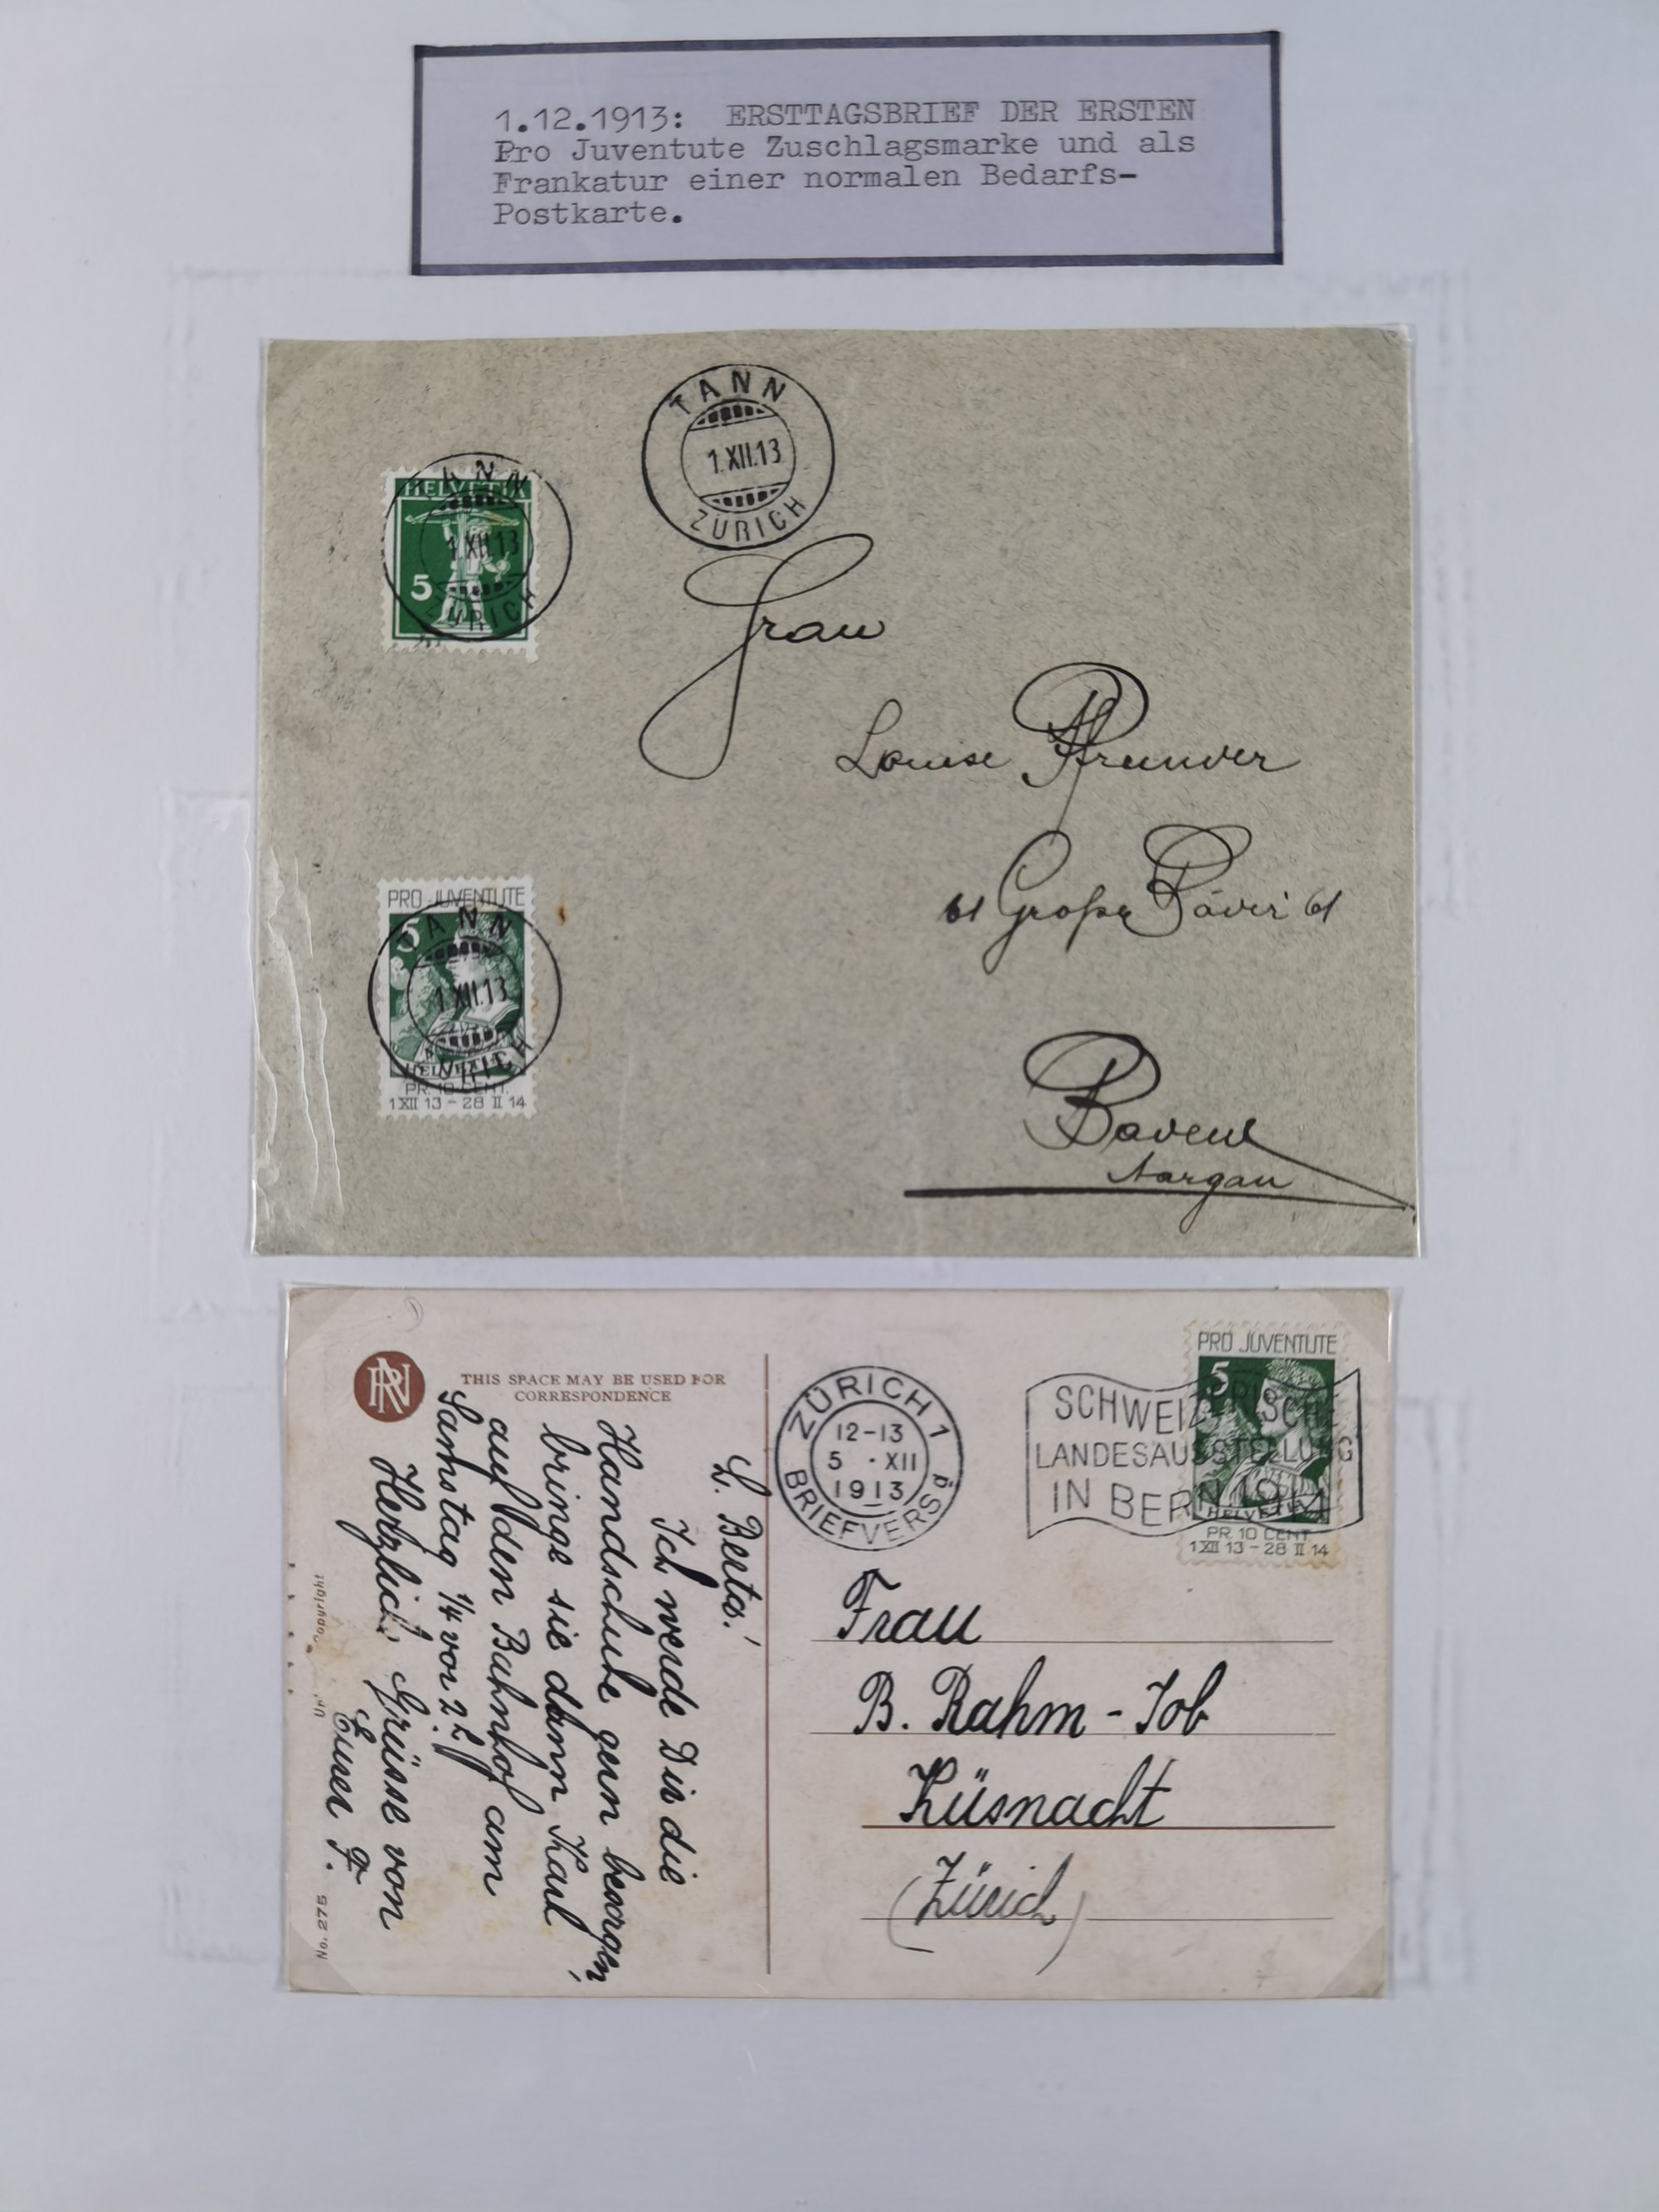 1.12.1913: ERSTTAGSBRIEF DER ERSTEN
Pro Juventute Zuschlagsmarke und als
Frankatur einer normalen Bedarfs-
Postkarte.
TANN
1.XII.13
ZÜRICH
HELVETIA
5
TANN
1.XII.13
ZÜRICH
Frau
Louise
61 Große 61
Aargau
PRO JUVENTUTE
5
TANN
1.XII.13
ZÜRICH
HELVETIA
PR. 10 CENT.
1 XII 13 - 28 II 14
THIS SPACE MAY BE USED FOR
CORRESPONDENCE
L. Berta!
Ich werde Dir die
Handschuhe gern besorgen,
bringe sie dann Karl
auf den Bahnhof am
Samstag 1/4 vor 2 h
Herzlich Grüsse von
Euer F.
Copyright
No. 275
ZÜRICH 1
12-13
5 · XII
1913
BRIEFVERSD.
SCHWEIZERISCHE
LANDESAUSSTELLUNG
IN BERN 1914
PRO JUVENTUTE
5
HELVETIA
PR. 10 CENT.
1 XII 13 - 28 II 14
Frau
B. Rahm - Job
Küsnacht
(Zürich)